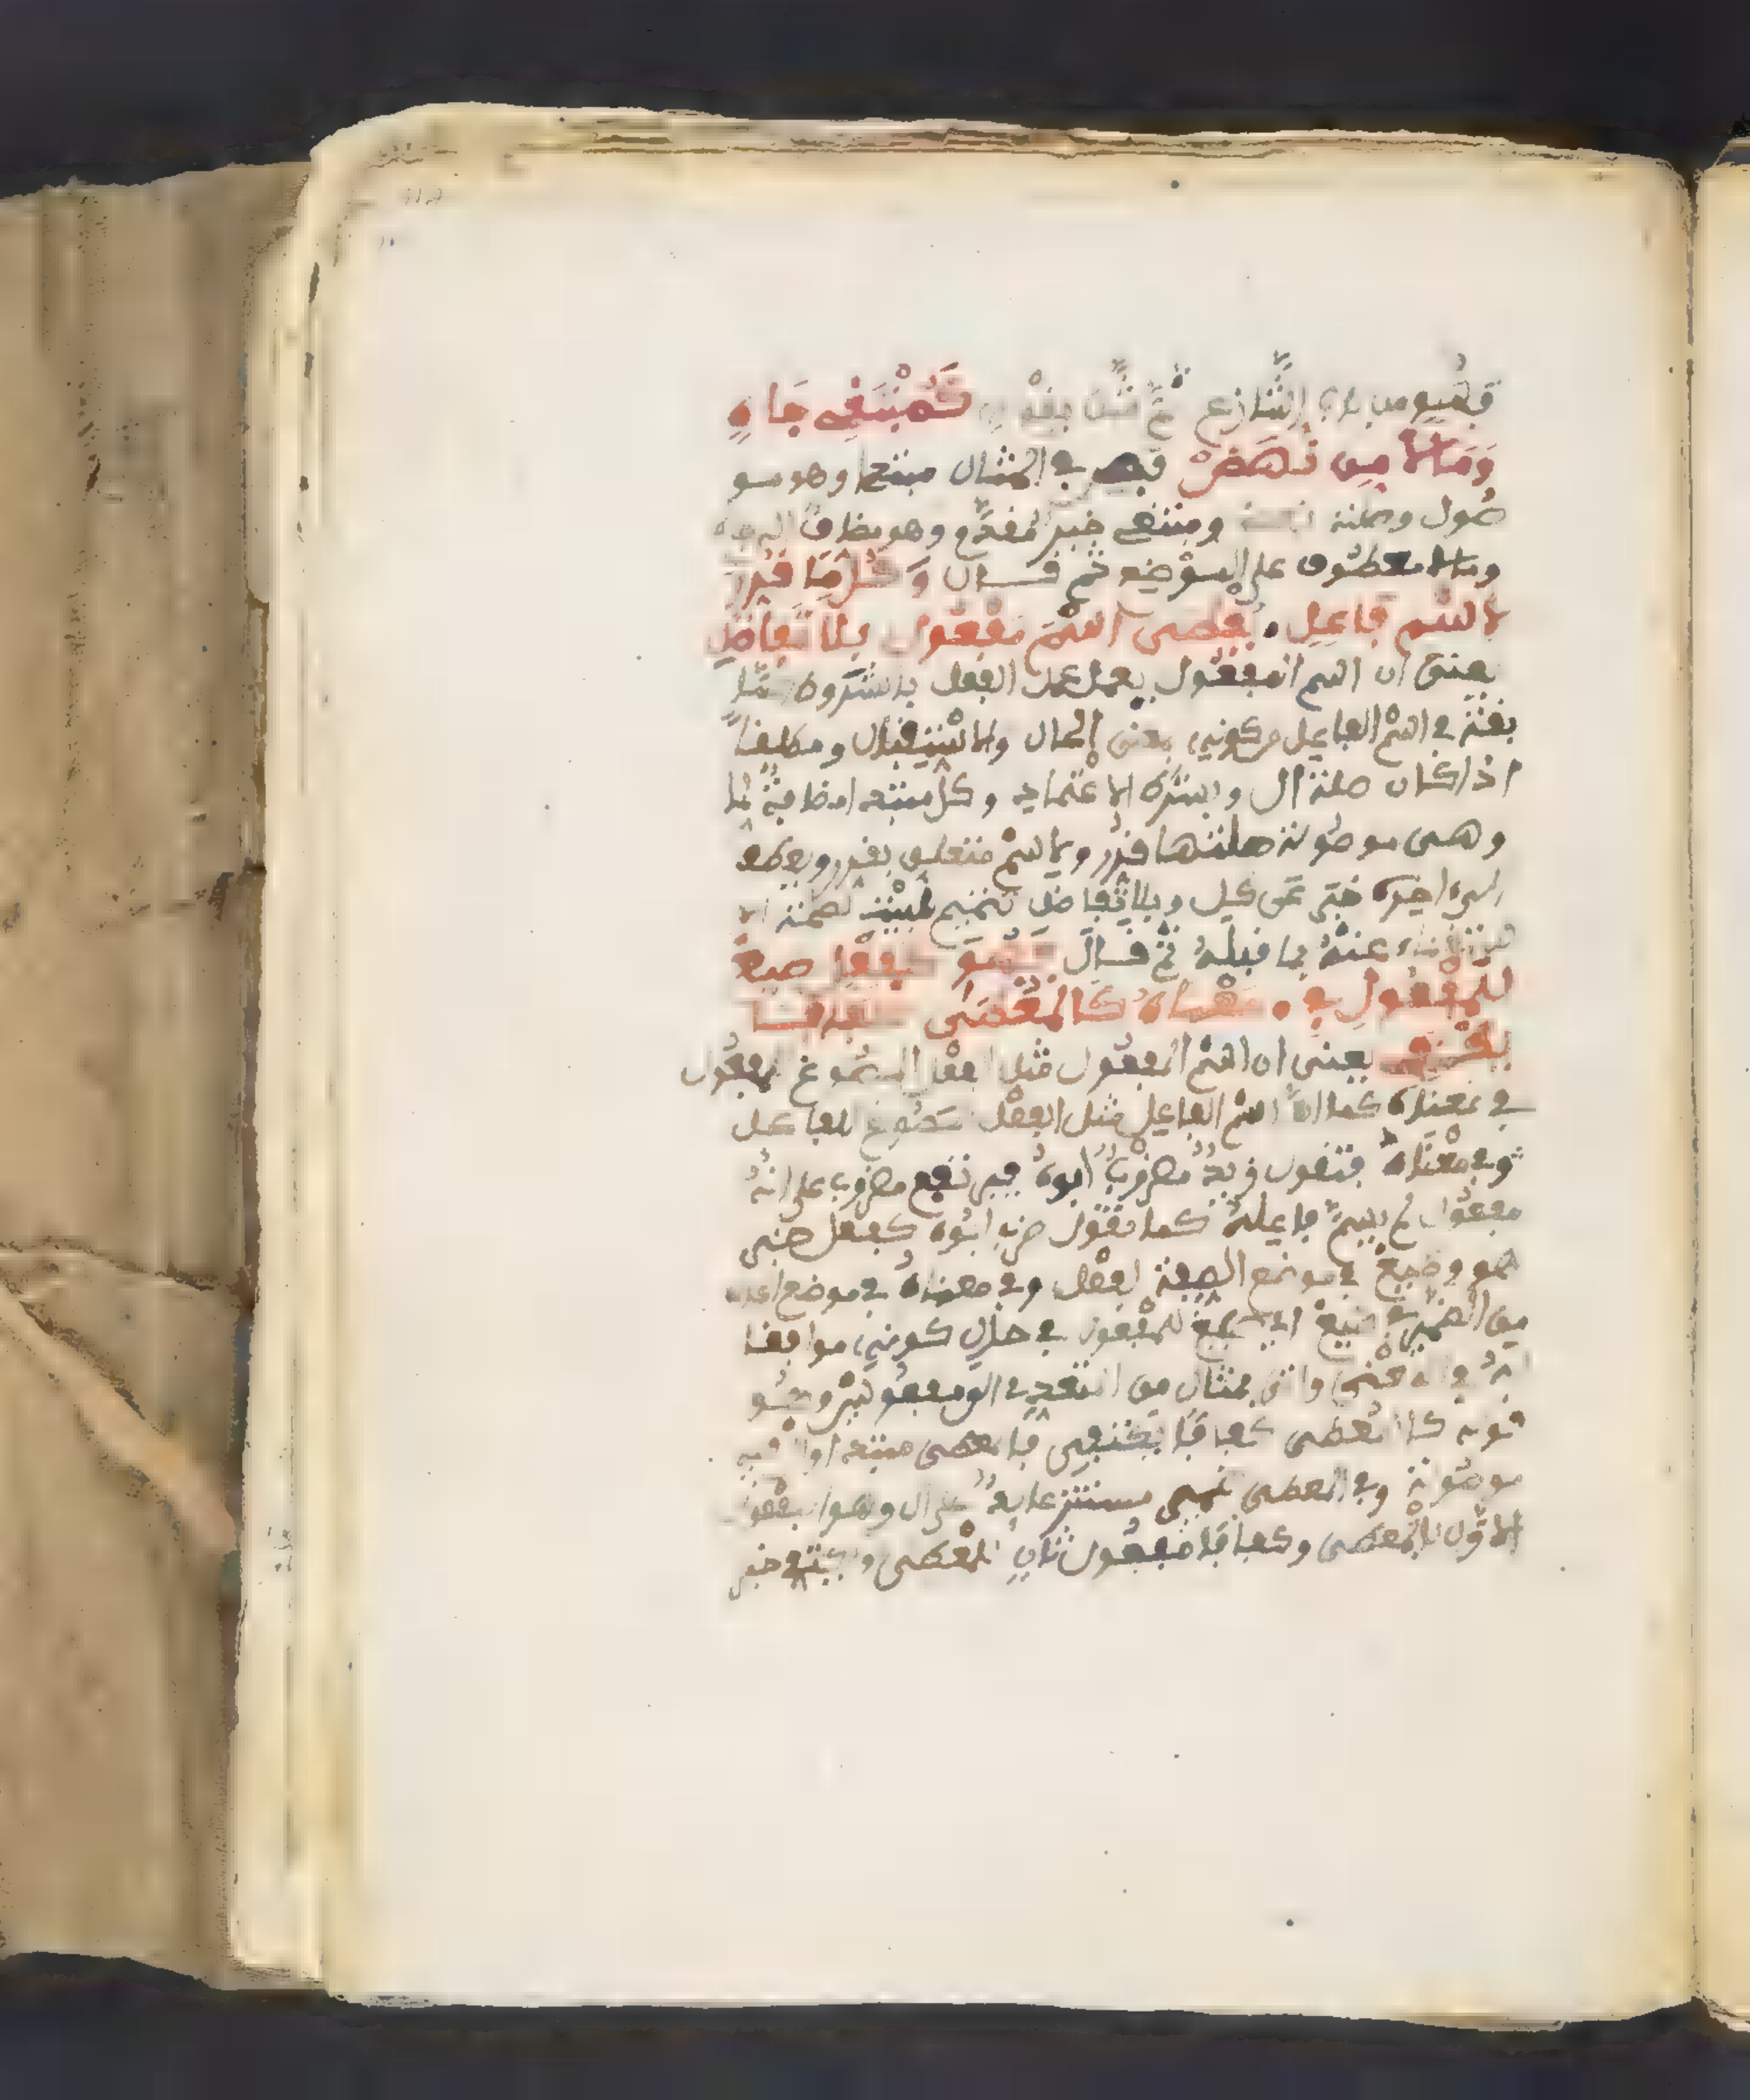 فهو من باب التنازع ثم مثل بقوله كمبتغي جاه
ومالا من نهض فمن في المثال مبتدأ وهو مو
صول وصلته نهض ومبتغي خبر مقدم وهو مضاف الى جاه
ومالا معطوف على الموضع ثم قال وكل ما قرر
لاسم فاعل يعطى اسم مفعول بلا تفاضل
يعني ان اسم المفعول يعمل عمل الفعل بالشروط
في اسم الفاعل من كونه بمعنى الحال والاستقبال ومطلقا
اذا كان صلة ال وبشرط الاعتماد وكل مبتدا مضافة لما
وهي موصولة صلتها قرر ولاسم متعلق بقرر ويعطى
الى اخره خبر عن كل وبلا تفاضل تتميم للبيت لصحة الا
ستغناء عنه بما قبله ثم قال فهو كفعل صيغ
للمفعول في معناه كالمعطى كفافا
يكتفي يعني ان اسم المفعول مثل الفعل المصوغ للمفعول
في معناه كما ان اسم الفاعل مثل الفعل المصوغ للفاعل
في معناه فتقول زيد مضروب ابوه فترفع مضروب على انه
مفعول لم يسم فاعله كما تقول ضرب ابوه كفعل خبر
هو وصيغ في موضع الصفة لفعل وفي معناه في موضع الحال
من الضمير في صيغ اي صيغ للمفعول في حال كونه موافقا
له في المعنى واتى بمثال من المتعدي الى مفعولين وهو
قوله كالمعطى كفافا يكتفي فالمعطى مبتدا وال فيه
موصولة وفي المعطى ضمير مستتر عايد على ال وهو المفعول
الاول بالمعطى وكفافا مفعول ثان للمعطى ويكتفي خبر